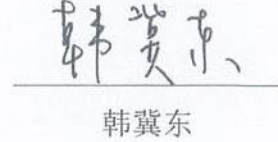 韩冀东
韩冀东